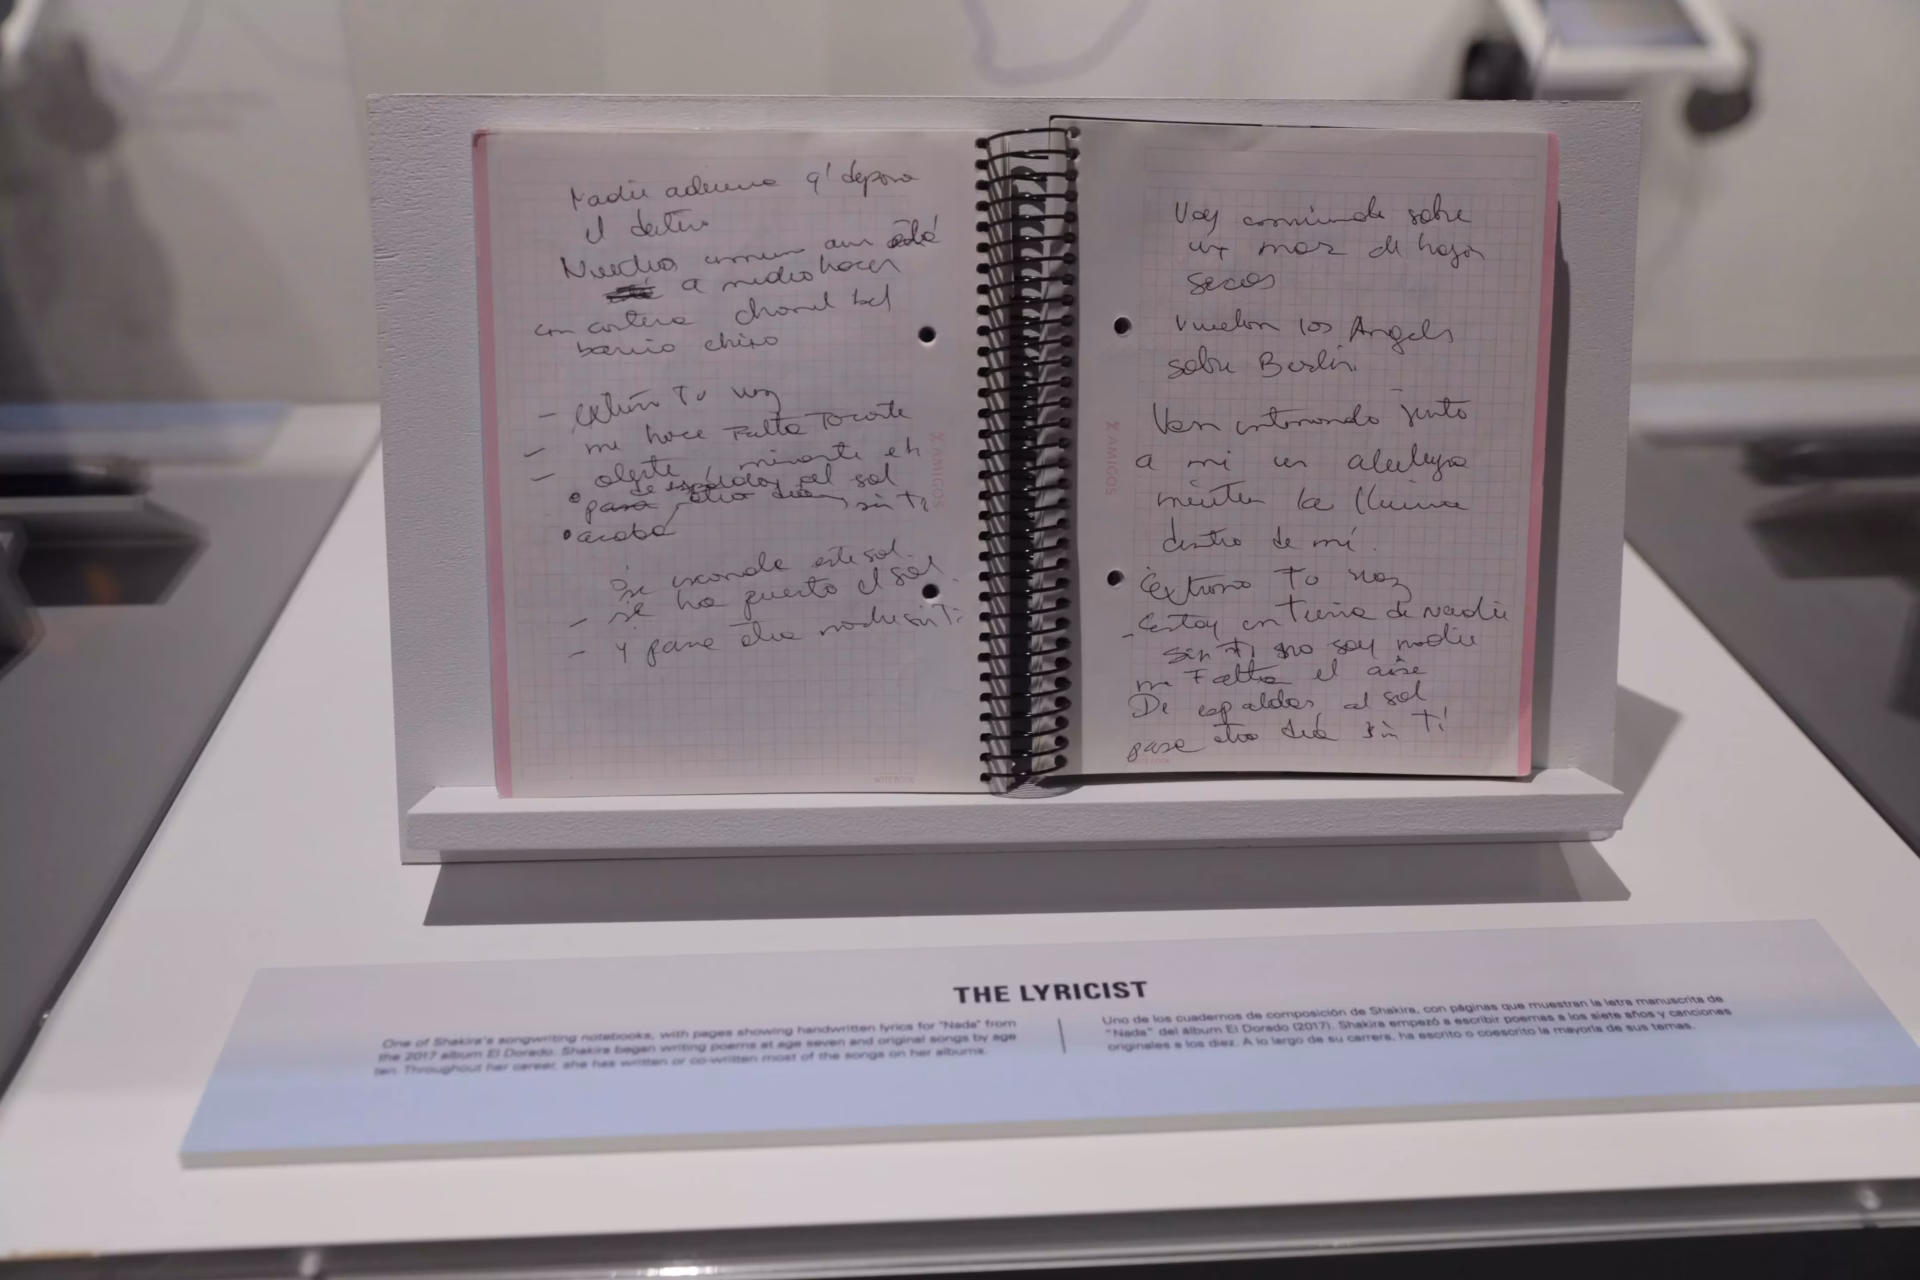 Nadie adivina q' depara
el destino
Nuestro camino aun está
a medio hacer
con cartera chanel del
barrio chino
- extraño tu voz
- me hace Falta Tocarte
- olerte, mirarte eh
de espaldas al sol
• pasa otro día sin ti
• acaba
Se esconde este sol.
- se ha puesto el sol.
- y pasa otra noche sin Ti
AMIGOS
NOTEBOOK
Voy caminando sobre
un mar de hojas
secas
Vuelan los Angels
sobre Berlin.
Van entonando junto
a mi un aleluya
mientras la lluvia
dentro de mí.
Extraño Tu voz
- Estoy en Tierra de Nadie
sin ti no soy nadie
me Falta el aire
De espaldas al sol
pasa otro día sin Ti
AMIGOS
NOTEBOOK
THE LYRICIST
One of Shakira's songwriting notebooks, with pages showing handwritten lyrics for "Nada" from
the 2017 album El Dorado. Shakira began writing poems at age seven and original songs by age
ten. Throughout her career, she has written or co-written most of the songs on her albums.
Uno de los cuadernos de composición de Shakira, con páginas que muestran la letra manuscrita de
"Nada" del álbum El Dorado (2017). Shakira empezó a escribir poemas a los siete años y canciones
originales a los diez. A lo largo de su carrera, ha escrito o coescrito la mayoría de sus temas.